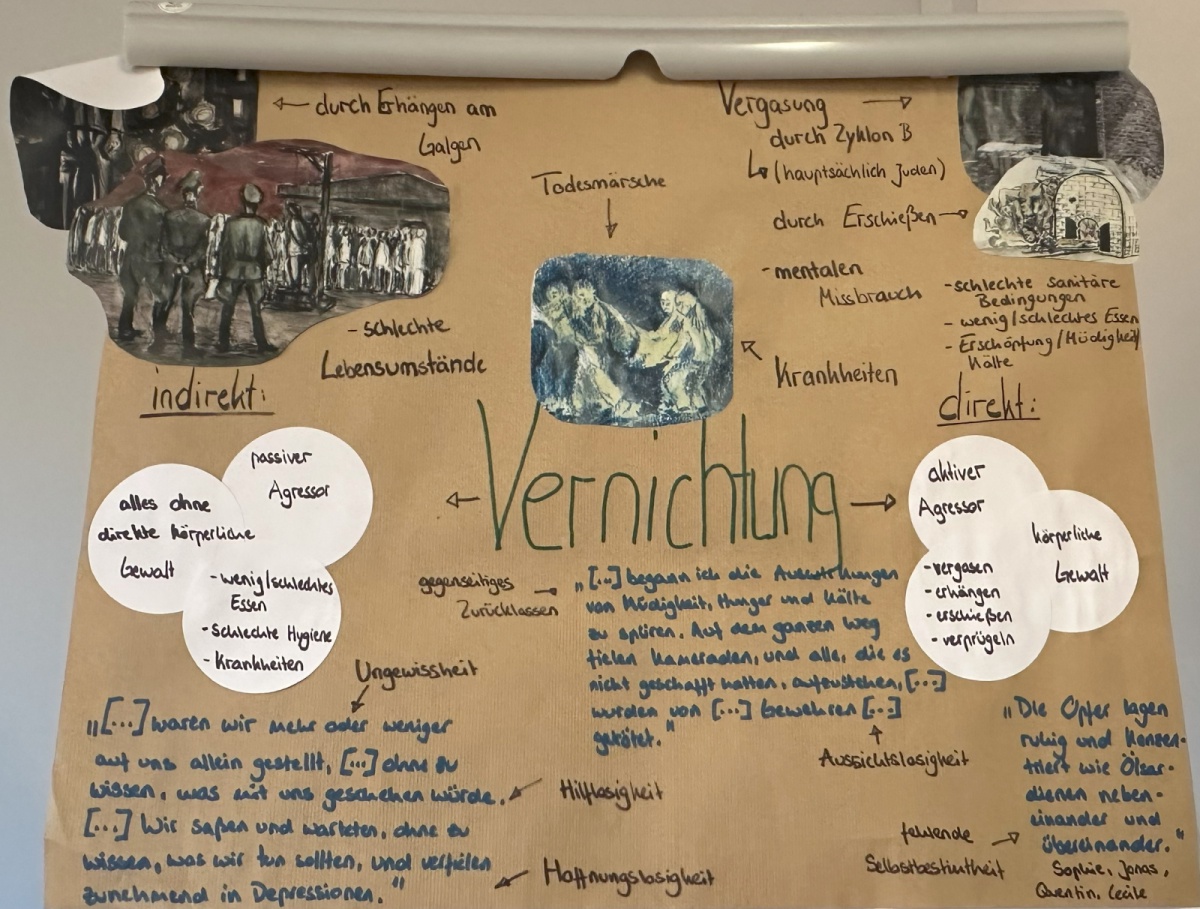 durch Erhängen am
Galgen
Vergasung
durch Zyklon B
(hauptsächlich Juden)
durch Erschießen
Todesmärsche
- mentalen
Missbrauch
- schlechte sanitäre
Bedingungen
- wenig/schlechtes Essen
- Erschöpfung/Müdigkeit/
Kälte
- schlechte
Lebensumstände
Krankheiten
indirekt:
direkt:
Vernichtung
passiver
Agressor
alles ohne
direkte körperliche
Gewalt
- wenig/schlechtes
Essen
- schlechte Hygiene
- Krankheiten
aktiver
Agressor
körperliche
Gewalt
- vergasen
- erhängen
- erschießen
- verprügeln
gegenseitiges
Zurücklassen
„[...] begann ich die Auswirkungen
von Müdigkeit, Hunger und Kälte
zu spüren. Auf dem ganzen Weg
fielen Kameraden, und alle, die es
nicht geschafft hatten, aufzustehen, [...]
wurden von [...] Gewehren [...]
getötet."
Aussichtslosigkeit
Ungewissheit
„[...] waren wir mehr oder weniger
auf uns allein gestellt, [...] ohne zu
wissen, was mit uns geschehen würde.
[...] Wir saßen und warteten, ohne zu
wissen, was wir tun sollten, und verfielen
zunehmend in Depressionen."
Hilflosigkeit
Hoffnungslosigkeit
„Die Opfer lagen
ruhig und konzen-
triert wie Ölsar-
dienen neben-
einander und
übereinander."
fehlende
Selbstbestimtheit
Sophie, Jonas,
Quentin, Cecile